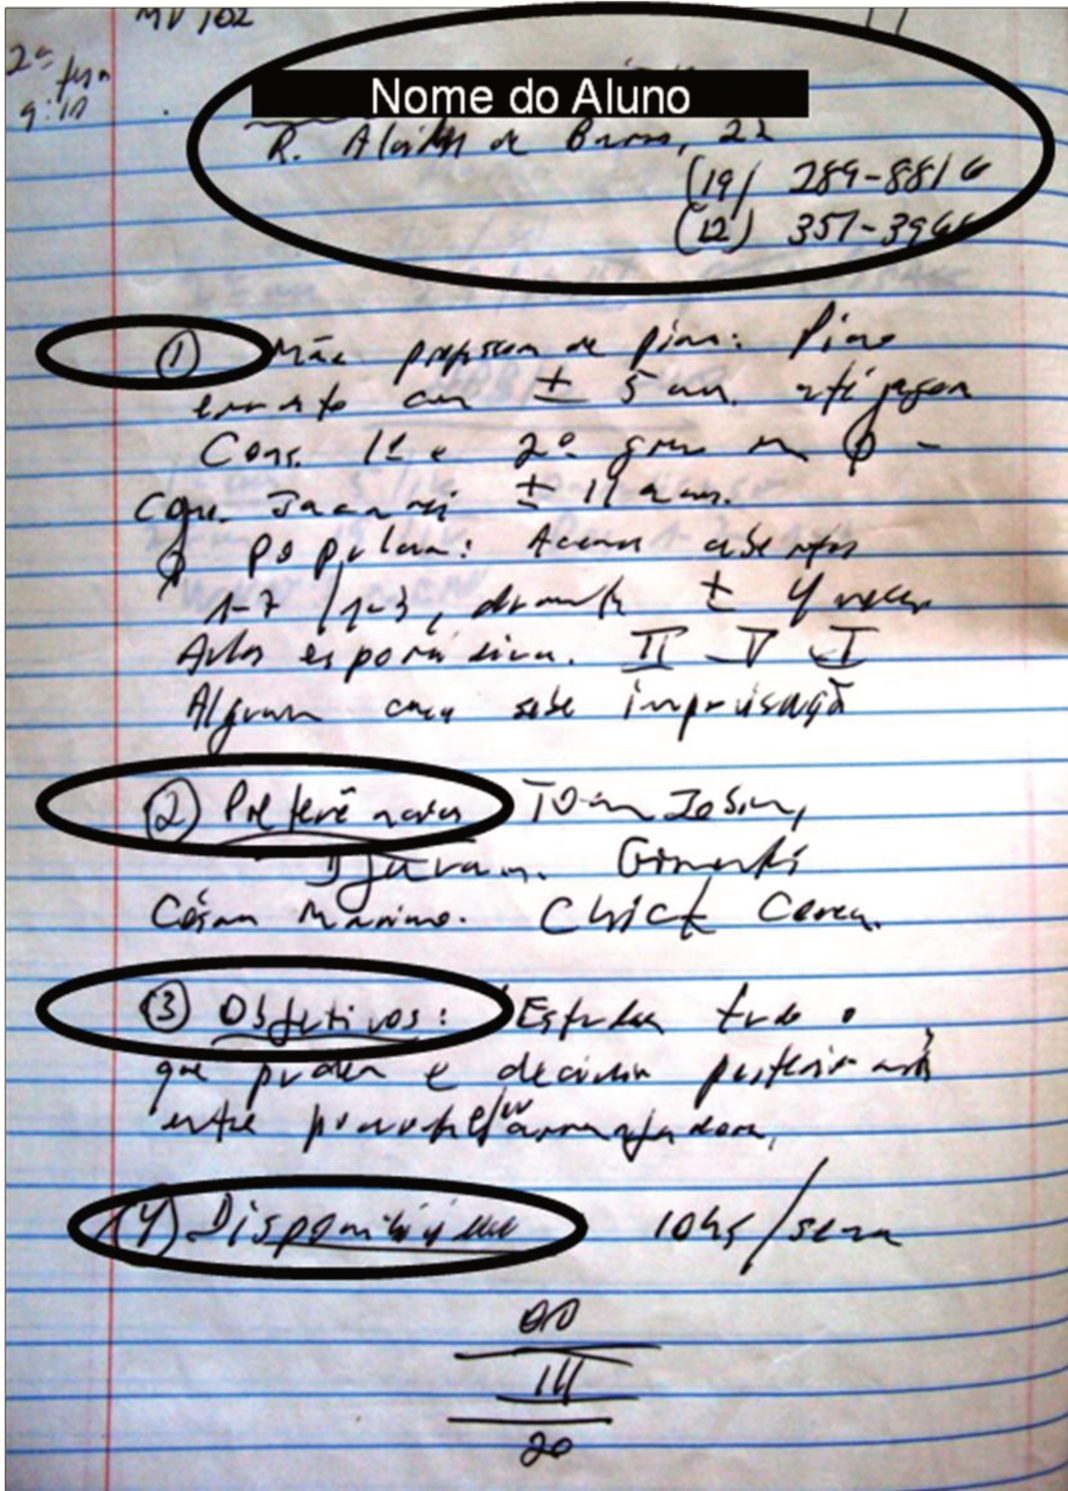 MV 102
2ª feira
9:10
Nome do Aluno
R. Alcides de Barros, 22
(19) 289-8816
(12) 351-3966
① Mãe professora de piano: Piano
erudito com ± 5 an. até
Cons. 1º e 2º grau
Cons. Jacareí ± 11 anos.
popular: Acordes abertos
1-7 / 1-3, durante ± 4 meses
Aulas esporádicas. II V I
Alguma coisa sobe improvisação
② Preferências Tom Jobim,
Djavan. Gismonti
César Mariano. Chick Corea.
③ Objetivos: Estudar tudo o
que puder e decidir posteriormente
entre
④ Disponibilidade 10hs/semana
111
20